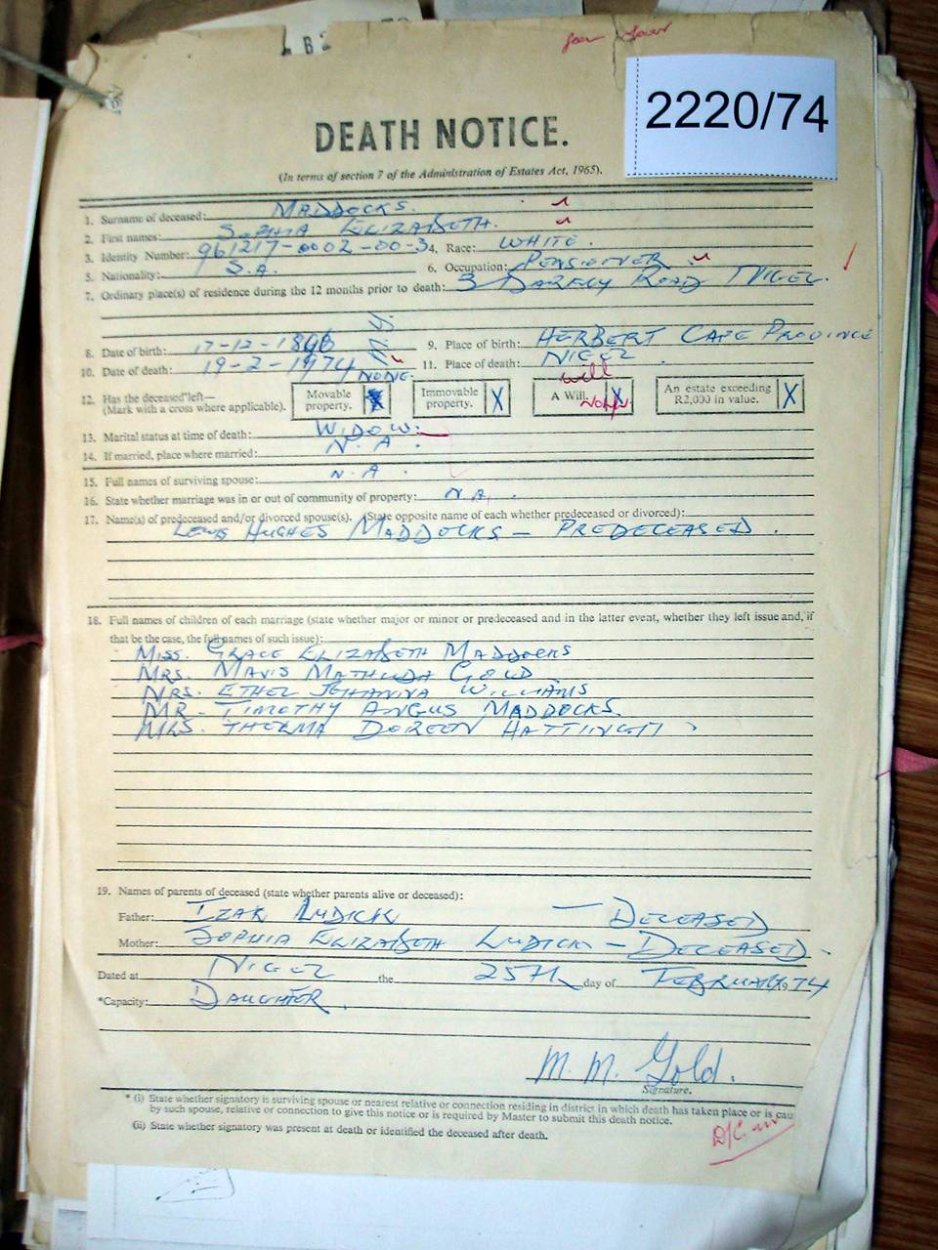 2220/74
DEATH NOTICE.
(In terms of section 7 of the Administration of Estates Act, 1965).
1. Surname of deceased: MADDOCKS.
2. First names: SOPHIA ELIZABETH.
3. Identity Number: 961217-0002-00-3 4. Race: WHITE.
5. Nationality: S.A. 6. Occupation: PENSIONER
7. Ordinary place(s) of residence during the 12 months prior to death: 3 ROAD NIGEL.
8. Date of birth: 17-12-1896 9. Place of birth: HERBERT CAPE PROVINCE
10. Date of death: 19-2-1974 11. Place of death: NIGEL.
NONE. will
12. Has the deceased left— Movable property. X Immovable property. X A Will. X An estate exceeding R2,000 in value. X
(Mark with a cross where applicable).
13. Marital status at time of death: WIDOW.
14. If married, place where married: N.A.
15. Full names of surviving spouse: N.A.
16. State whether marriage was in or out of community of property: N.A.
17. Name(s) of predeceased and/or divorced spouse(s). (State opposite name of each whether predeceased or divorced):
LEWIS HUGHES MADDOCKS — PREDECEASED.
18. Full names of children of each marriage (state whether major or minor or predeceased and in the latter event, whether they left issue and, if
that be the case, the full names of such issue):
MISS. GRACE ELIZABETH MADDOCKS
MRS. MAVIS MATHILDA GOLD
MRS. ETHEL JOHANNA WILLIAMS
MR. TIMOTHY ANGUS MADDOCKS.
MRS. THERMA DOREEN HATTINGH
19. Names of parents of deceased (state whether parents alive or deceased):
Father: IZAK LUDICK — DECEASED
Mother: SOPHIA ELIZABETH LUDICK — DECEASED.
Dated at NIGEL the 25TH day of FEBRUARY 1974
*Capacity: DAUGHTER.
M. M. Gold.
Signature.
* (i) State whether signatory is surviving spouse or nearest relative or connection residing in district in which death has taken place or is cau
by such spouse, relative or connection to give this notice or is required by Master to submit this death notice.
(ii) State whether signatory was present at death or identified the deceased after death.